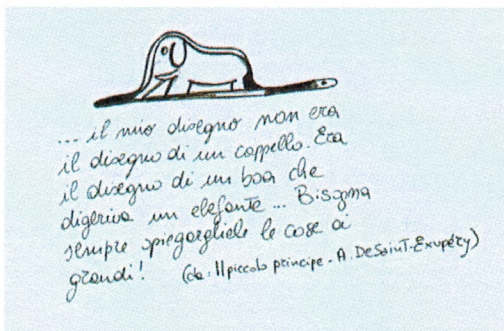 ... il mio disegno non era
il disegno di un cappello. Era
il disegno di un boa che
digeriva un elefante ... Bisogna
sempre spiegargliele le cose ai
grandi!
(da: Il piccolo principe - A. De Saint-Exupéry)